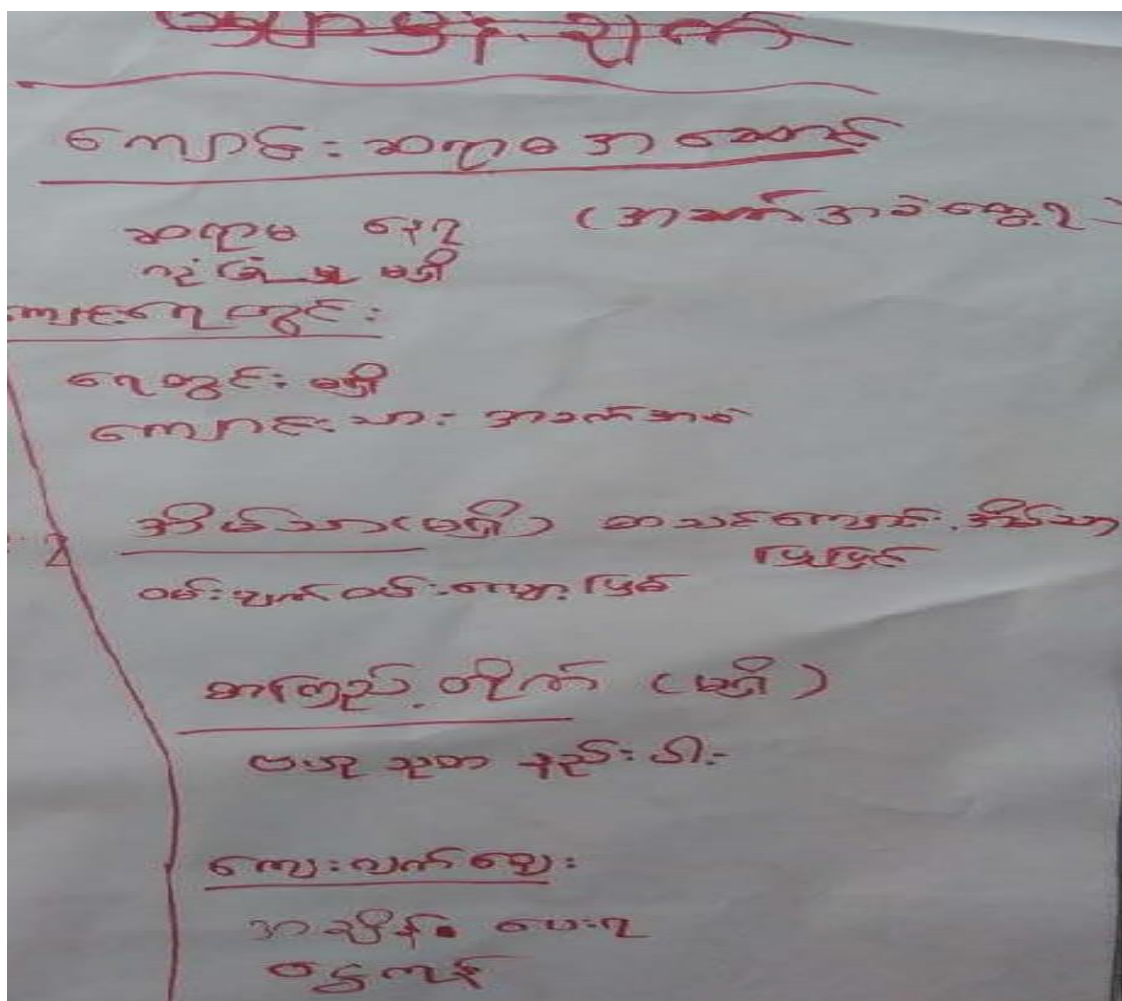 ကျောင်းဆရာမအဆောင်
ဆရာမ နေရ (အခက်အခဲတွေ့ရ)
လုံခြုံမှု မရှိ
ကျောင်းရေတွင်း
ရေတွင်း မရှိ
ကျောင်းသား အခက်အခဲ
အိမ်သာ (မရှိ) စာသင်ကျောင်း, အိမ်သာ
ဝမ်းပျက်ဝမ်းလျှောဖြစ်
စာကြည့်တိုက် (မရှိ)
ဗဟုသုတ နည်းပါး
ကျေးလက်ဈေး
အချိန် ပေးရ